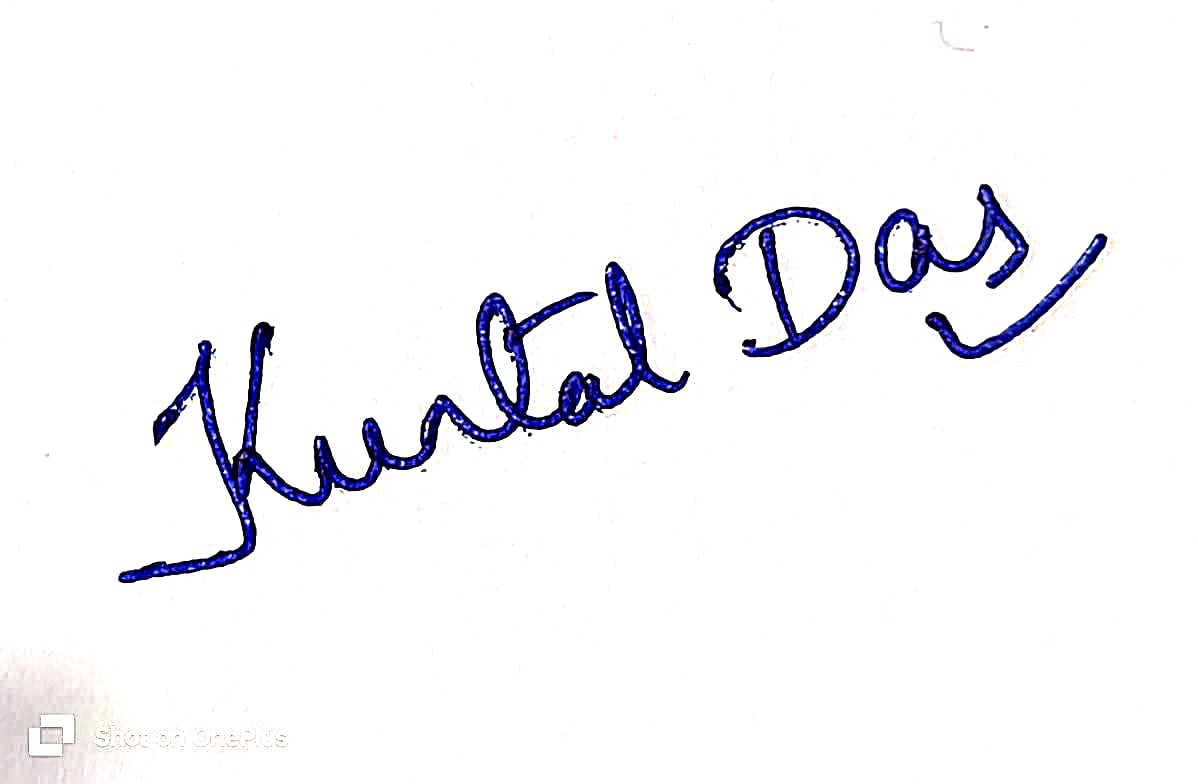 Kuntal Das
Shot on OnePlus